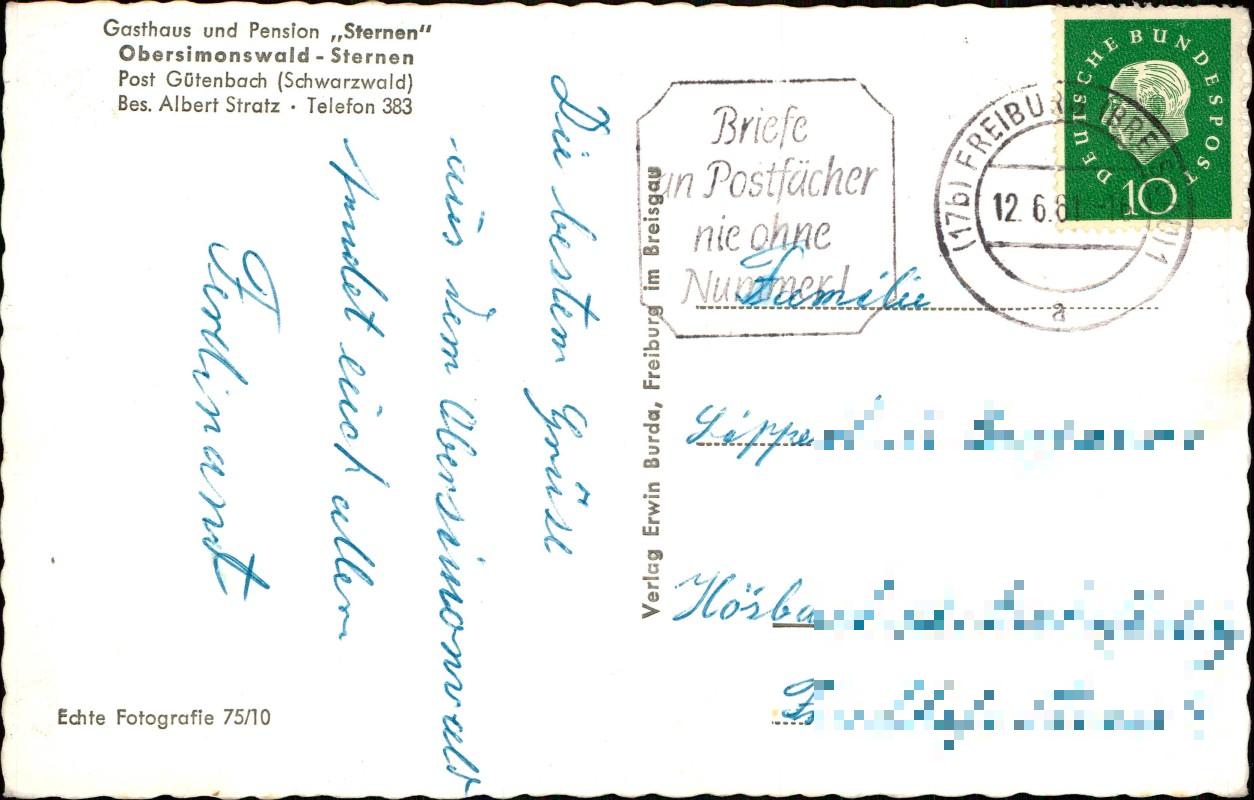 Gasthaus und Pension „Sternen"
Obersimonswald - Sternen
Post Gütenbach (Schwarzwald)
Bes. Albert Stratz · Telefon 383
Die besten Grüße
aus dem Obersimonswald
sendet euch allen
Ferdinant
Echte Fotografie 75/10
Verlag Erwin Burda, Freiburg im Breisgau
Briefe
an Postfächer
nie ohne
Nummer!
(17b) FREIBURG BREISGAU 1
12.6.61
a
DEUTSCHE BUNDESPOST
10
Familie